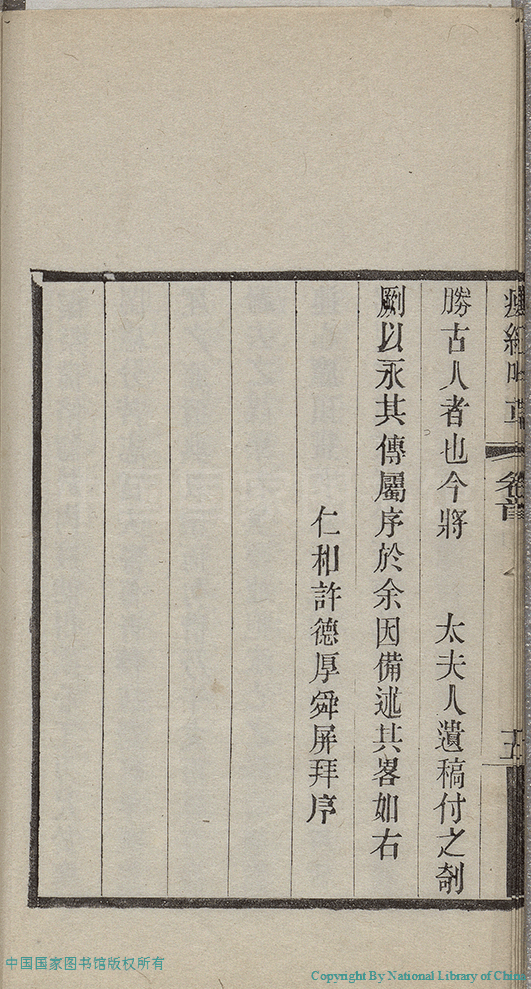 勝古人者也今將　太夫人遺稿付之剞
劂以永其傳屬序於余因備述其畧如右
仁和許德厚舜屏拜序
卷首
五
中国国家图书馆版权所有
Copyright By National Library of China